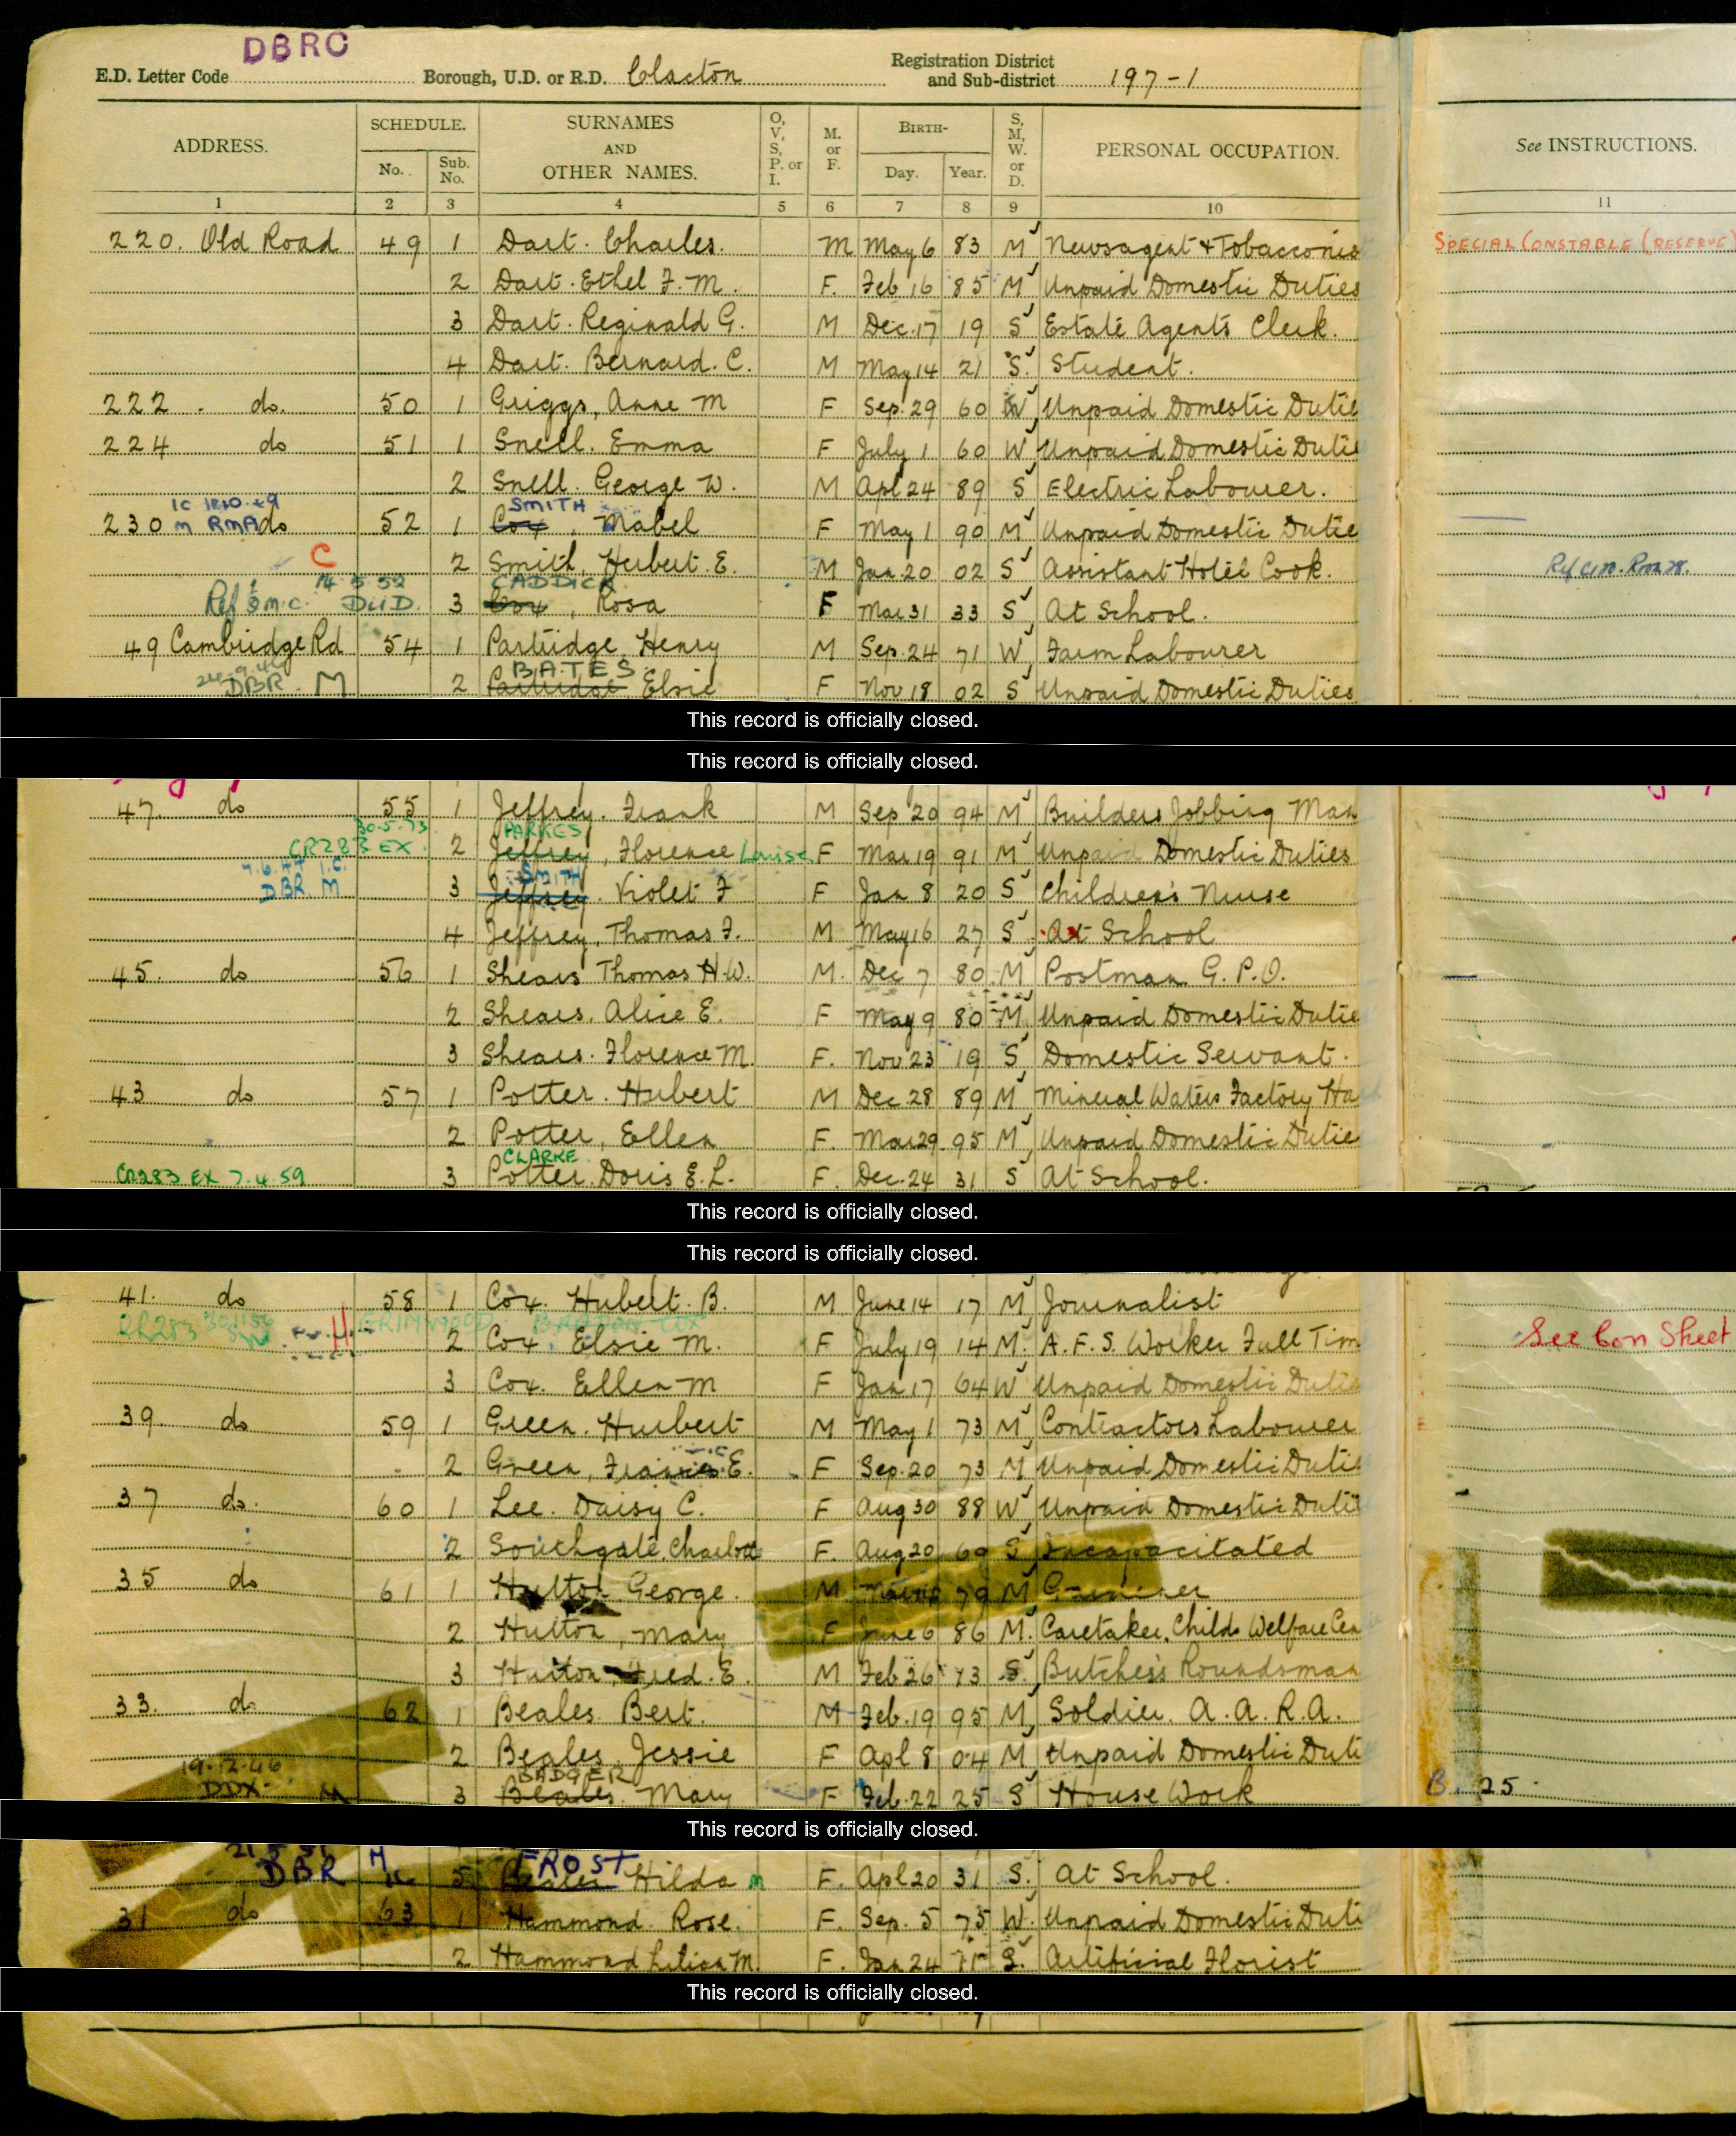 DBRC
E.D. Letter Code Borough, U.D. or R.D. Clacton Registration District and Sub-district 197-1
ADDRESS. SCHEDULE. No. Sub. No. SURNAMES AND OTHER NAMES. O, V, S, P. or I. M. or F. BIRTH- Day. Year. S, M, W. or D. PERSONAL OCCUPATION. See INSTRUCTIONS.
1 2 3 4 5 6 7 8 9 10 11
220. Old Road 49 1 Dart. Charles. M May 6 83 M Newsagent & Tobacconis SPECIAL CONSTABLE (RESERVE)
2 Dart. Ethel F. M. F. Feb 16 85 M Unpaid Domestic Duties
3 Dart. Reginald G. M Dec. 17 19 S Estate Agents Clerk.
4 Dart. Bernard. C. M May 14 21 S. Student.
222. do. 50 1 Griggs, Anne M F Sep. 29 60 W Unpaid Domestic Dutie
224 do 51 1 Snell. Emma F July 1 60 W Unpaid Domestic Dutie
2 Snell. George W. M Apl 24 89 S Electric Labourer.
SMITH
230 M RMA do 52 1 Cox, Mabel F May 1 90 M Unpaid Domestic Dutie
C 2 Smith, Herbert. E. M Jan. 20 02 S Assistant Hotel Cook.
14.5.52 CADDICK
Ref SMC. 3 Cox, Rosa F Mar 31 33 S At School.
49 Cambridge Rd 54 1 Partridge, Henry M Sep. 24 71 W Farm Labourer
BATES
DBR. M 2 Partridge Elsie F Nov 18 02 S Unpaid Domestic Duties
This record is officially closed.
This record is officially closed.
47. do 55 1 Jeffrey. Frank M Sep 20 94 M Builders Jobbing Man
30.5.73 PARKES
CR283 EX. 2 Jeffrey, Florence Louise F Mar 19 91 M Unpaid Domestic Duties
SMITH
DBR. M 3 Jeffrey. Violet F F Jan 8 20 S Children's Nurse
4 Jeffrey, Thomas F. M May 16 27 S At School
45. do 56 1 Shears Thomas H.W. M. Dec 7 80 M Postman G.P.O.
2 Shears. Alice E. F May 9 80 M Unpaid Domestic Dutie
3 Shears. Florence M. F. Nov 23 19 S Domestic Servant.
43 do 57 1 Potter. Hubert M Dec 28 89 M Mineral Waters Factory Ha
2 Potter, Ellen F. Mar 29. 95 M Unpaid Domestic Dutie
CLARKE
CR283 EX 7.4.59 3 Potter. Doris E. L. F. Dec. 24 31 S At School.
This record is officially closed.
This record is officially closed.
41. do 58 1 Cox. Hubert. B. M June 14 17 M Journalist
CR283 H GRIMWOOD
2 Cox, Elsie M. F July 19 14 M. A.F.S. Worker Full Tim See Con Sheet
3 Cox. Ellen M F Jan 17 64 W Unpaid Domestic Dutie
39. do 59 1 Green. Hurbert M May 1 73 M Contractors Labourer
2 Green, Frances E. F Sep. 20 73 M Unpaid Domestic Dutie
37 do. 60 1 Lee. Daisy C. F Aug 30 88 W Unpaid Domestic Dutie
2 Southgate, F. Aug 20 69 S Incapacitated
35 do 61 1 Hutton George. M 79 M Gardener
2 Hutton, Mary F June 6 86 M. Caretaker. Childs Welfare Cen
3 Hutton, Fred. E. M Feb 26 13 S. Butcher's Roundsman
33. do 62 1 Beales. Bert. M Feb. 19 95 M Soldier. A.A.R.A.
2 Beales. Jessie F Apl 8 04 M Unpaid Domestic Duti
19.12.46 BADGER
DDX. M 3 Beales. Mary F Feb. 22 25 S House Work B. 25.
This record is officially closed.
FROST
DBR M 5 Beales Hilda M F. Apl 20 31 S. At School.
31 do 63 1 Hammond. Rose. F. Sep. 5 75 W. Unpaid Domestic Duti
2 Hammond Lilian M. F. Jan 24 S. Artificial Florist
This record is officially closed.